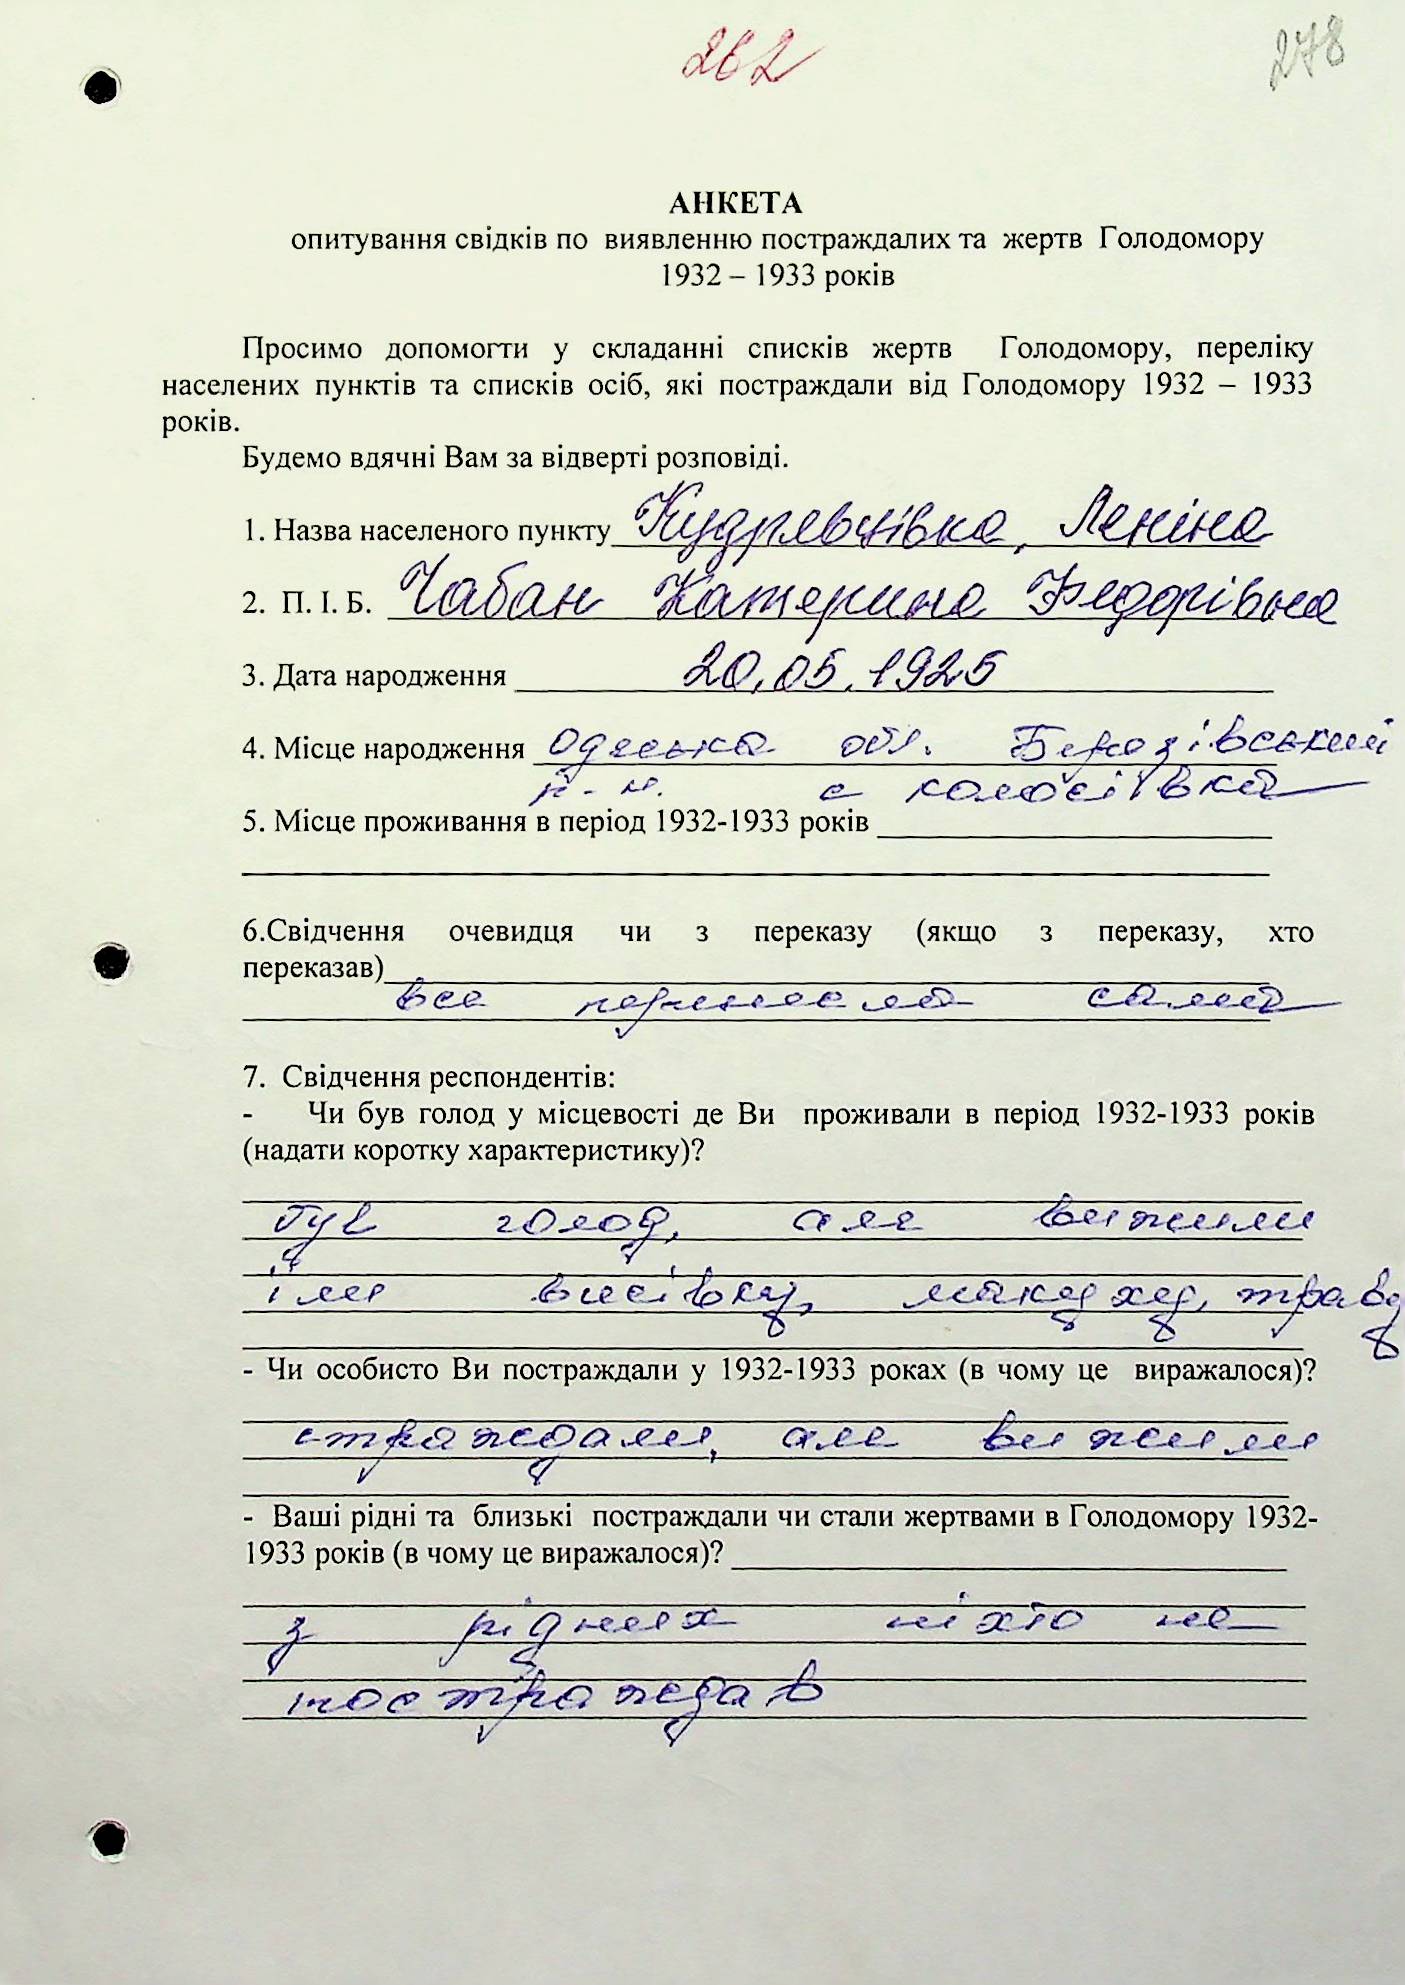 262
278
АНКЕТА
опитування свідків по виявленню постраждалих та жертв Голодомору
1932 – 1933 років
Просимо допомогти у складанні списків жертв Голодомору, переліку
населених пунктів та списків осіб, які постраждали від Голодомору 1932 – 1933
років.
Будемо вдячні Вам за відверті розповіді.
1. Назва населеного пункту Кудрявцівка, Леніна
2. П. І. Б. Чабан Катерина Федорівна
3. Дата народження 20.05.1925
4. Місце народження Одеська обл. Березівський
р-н. с Колосівка
5. Місце проживання в період 1932-1933 років
6.Свідчення очевидця чи з переказу (якщо з переказу, хто
переказав)
все перенесла сама
7. Свідчення респондентів:
- Чи був голод у місцевості де Ви проживали в період 1932-1933 років
(надати коротку характеристику)?
був голод, але вижили
їли висівку, макуху, траву
- Чи особисто Ви постраждали у 1932-1933 роках (в чому це виражалося)?
страждали, але вижили
- Ваші рідні та близькі постраждали чи стали жертвами в Голодомору 1932-
1933 років (в чому це виражалося)?
з рідних ніхто не
постраждав